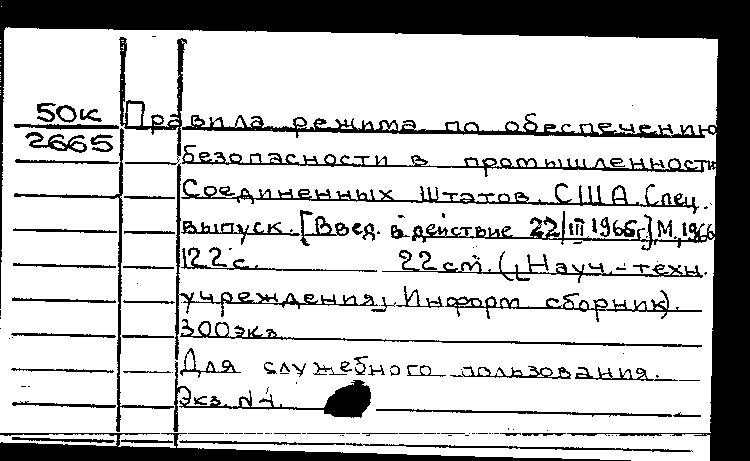 50к Правила режима по обеспечению
2665
безопасности в промышленности
Соединенных Штатов. США. Спец.
выпуск. [Введ. в действие 22/III 1965г.] М, 1966
122 с. 22 см. ([Науч.-техн.
учреждения]. Информ сборник).
300экз.
Для служебного пользования.
Экз. N1.